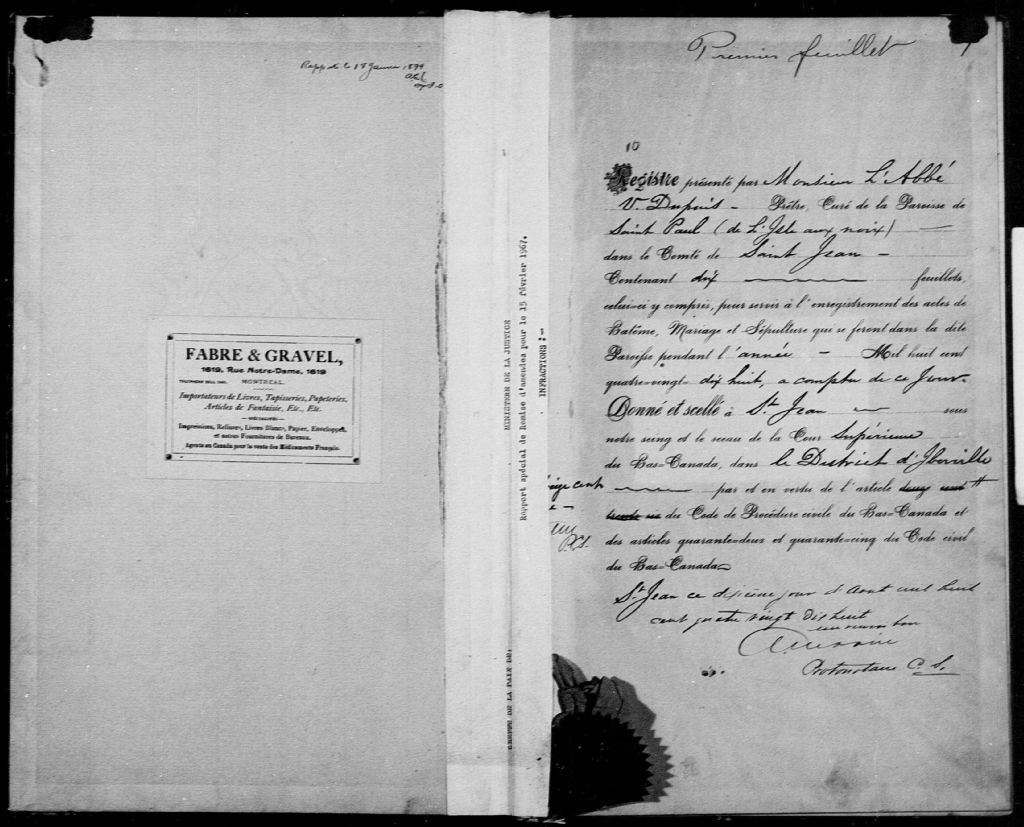 Rapp. de le 18 Janvier 1899
FABRE & GRAVEL,
1619, Rue Notre-Dame, 1619
MONTREAL.
Importateurs de Livres, Tapisseries, Papeteries,
Articles de Fantaisie, Etc., Etc.
Impressions, Reliures, Livres Blancs, Papier, Enveloppes,
et autres Fournitures de Bureaux.
Agents au Canada pour la vente des Médicaments Français.
GREFFE DE LA PAIX DE:
MINISTERE DE LA JUSTICE
Rapport spécial de Remise d'amendes pour le 15 février 1967.
INFRACTIONS :-
Premier feuillet
1
10
Registre présenté par Monsieur L'Abbé
V. Dupuis - Prêtre, Curé de la Paroisse de
Saint Paul (de L'Isle aux noix)
dans le Comté de Saint Jean -
Contenant dix feuillets,
celui-ci y compris, pour servir à l'enregistrement des actes de
Batême, Mariage et Sépulture qui se feront dans la dite
Paroisse pendant l'année - Mil huit cent
quatre-vingt dix huit, a compter de ce Jour.
Donné et scellé à St. Jean sous
notre seing et le sceau de la Cour Supérieure
du Bas-Canada, dans le District d'Iberville
par et en vertu de l'article douze cent #
trente six du Code de Procédure civile du Bas-Canada et
des articles quarante-deux et quarante-cinq du Code civil
du Bas-Canada
St. Jean ce dixième jour d'Aout mil huit
cent quatre vingt dix huit
Protonotaire C. S.